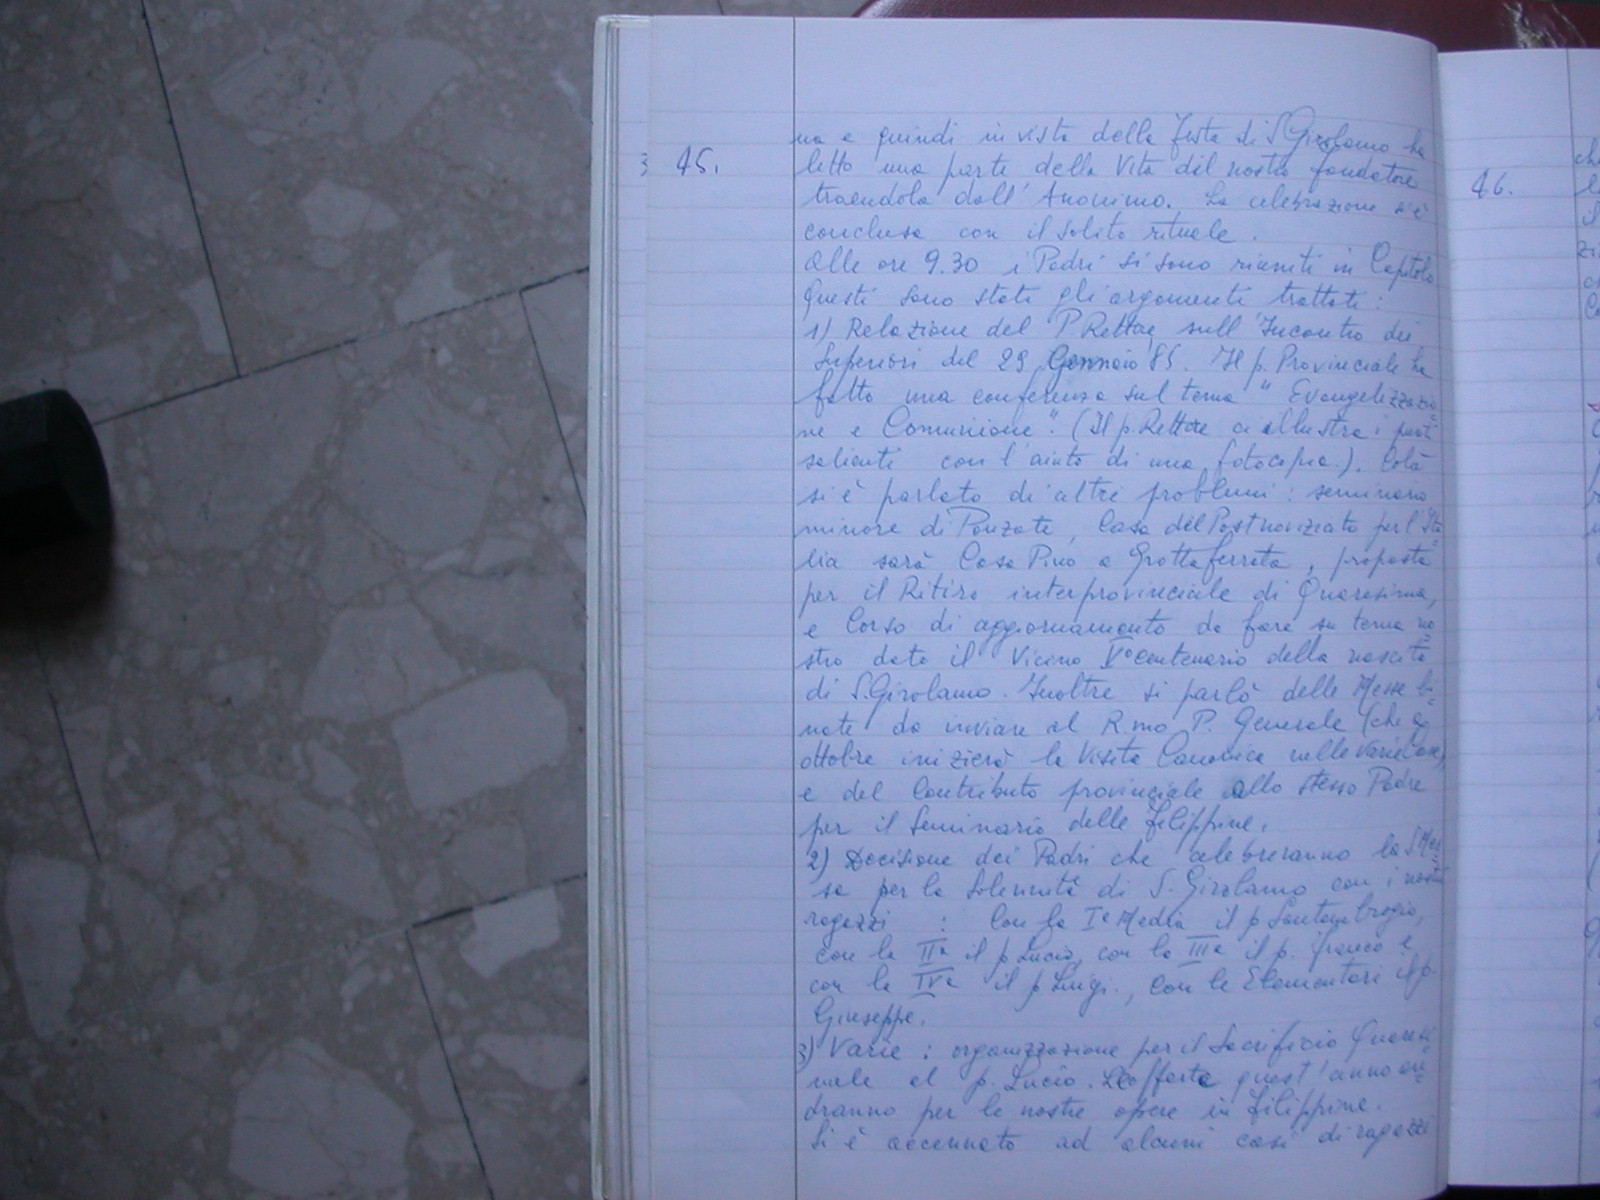 45.
na e quindi in vista della festa di S. Girolamo ha
letto una parte della Vita del nostro fondatore
traendola dall'Anonimo. La celebrazione si è
conclusa con il solito rituale.
Alle ore 9.30 i Padri si sono riuniti in Capitolo
Questi sono stati gli argomenti trattati:
1) Relazione del P. Rettore, sull'Incontro dei
Superiori del 29 Gennaio 85. Il p. Provinciale ha
fatto una conferenza sul tema "Evangelizzazio=
ne e Comunione". (Il p. Rettore ci illustra i punti
salienti con l'aiuto di una fotocopia.). Colà
si è parlato di altri problemi: seminario
minore di Ponzate, Casa del Postnoviziato per l'Ita=
lia sarà Casa Pino a Grottaferrata, proposta
per il Ritiro interprovinciale di Quaresima,
e Corso di aggiornamento da fare su tema no=
stro dato il Vicino V° centenario della nascita
di S. Girolamo. Inoltre si parlò delle Messe bi=
nate da inviare al R.mo P. Generale (che
ottobre inizierà la Visita Canonica nelle varie Case)
e del Contributo provinciale allo stesso Padre
per il Seminario delle Filippine.
2) Decisione dei Padri che celebreranno la S. Mes=
sa per la Solennità di S. Girolamo con i nostri
ragazzi : Con la Iª Media il p Santambrogio,
con la IIa il p Lucio, con la IIIa il p. Franco e
con la IVa il p Luigi., con le Elementari il p.
Giuseppe.
3) Varie: organizzazione per il Sacrificio Quaresi=
male al p. Lucio. Le offerte quest'anno an=
dranno per le nostre opere in Filippine.
Si è accennato ad alcuni casi di ragazzi
46.